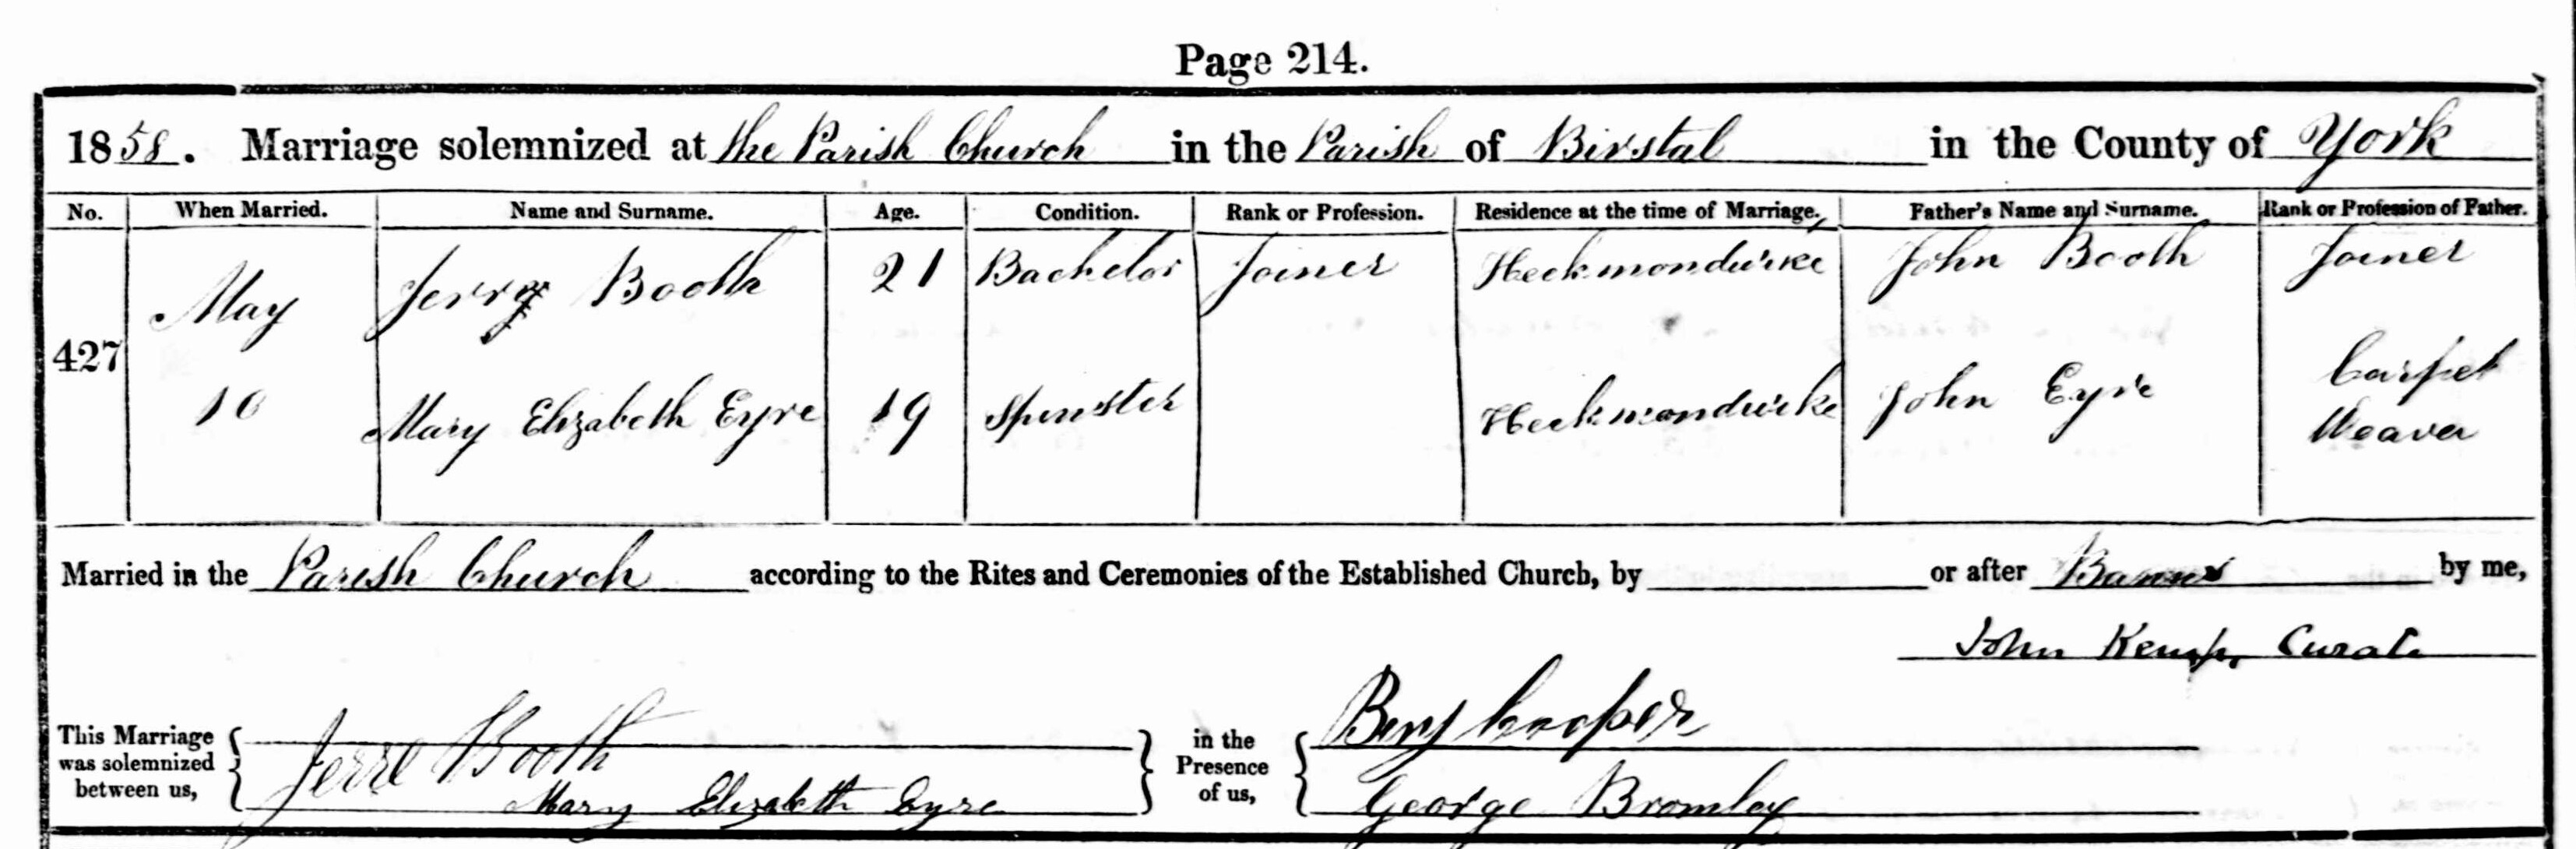 Page 214.
1858. Marriage solemnized at the Parish Church in the Parish of Birstal in the County of York
No. When Married. Name and Surname. Age. Condition. Rank or Profession. Residence at the time of Marriage. Father's Name and Surname. Rank or Profession of Father.
427 May 10
Jerry Booth 21 Bachelor Joiner Heckmondwike John Booth Joiner
Mary Elizabeth Eyre 19 Spinster Heckmondwike John Eyre Carpet Weaver
Married in the Parish Church according to the Rites and Ceremonies of the Established Church, by or after Banns by me,
John Kemp, Curate
This Marriage was solemnized between us, Jerre Booth
Mary Elizabeth Eyre
in the Presence of us, Benj Cooper
George Bromley